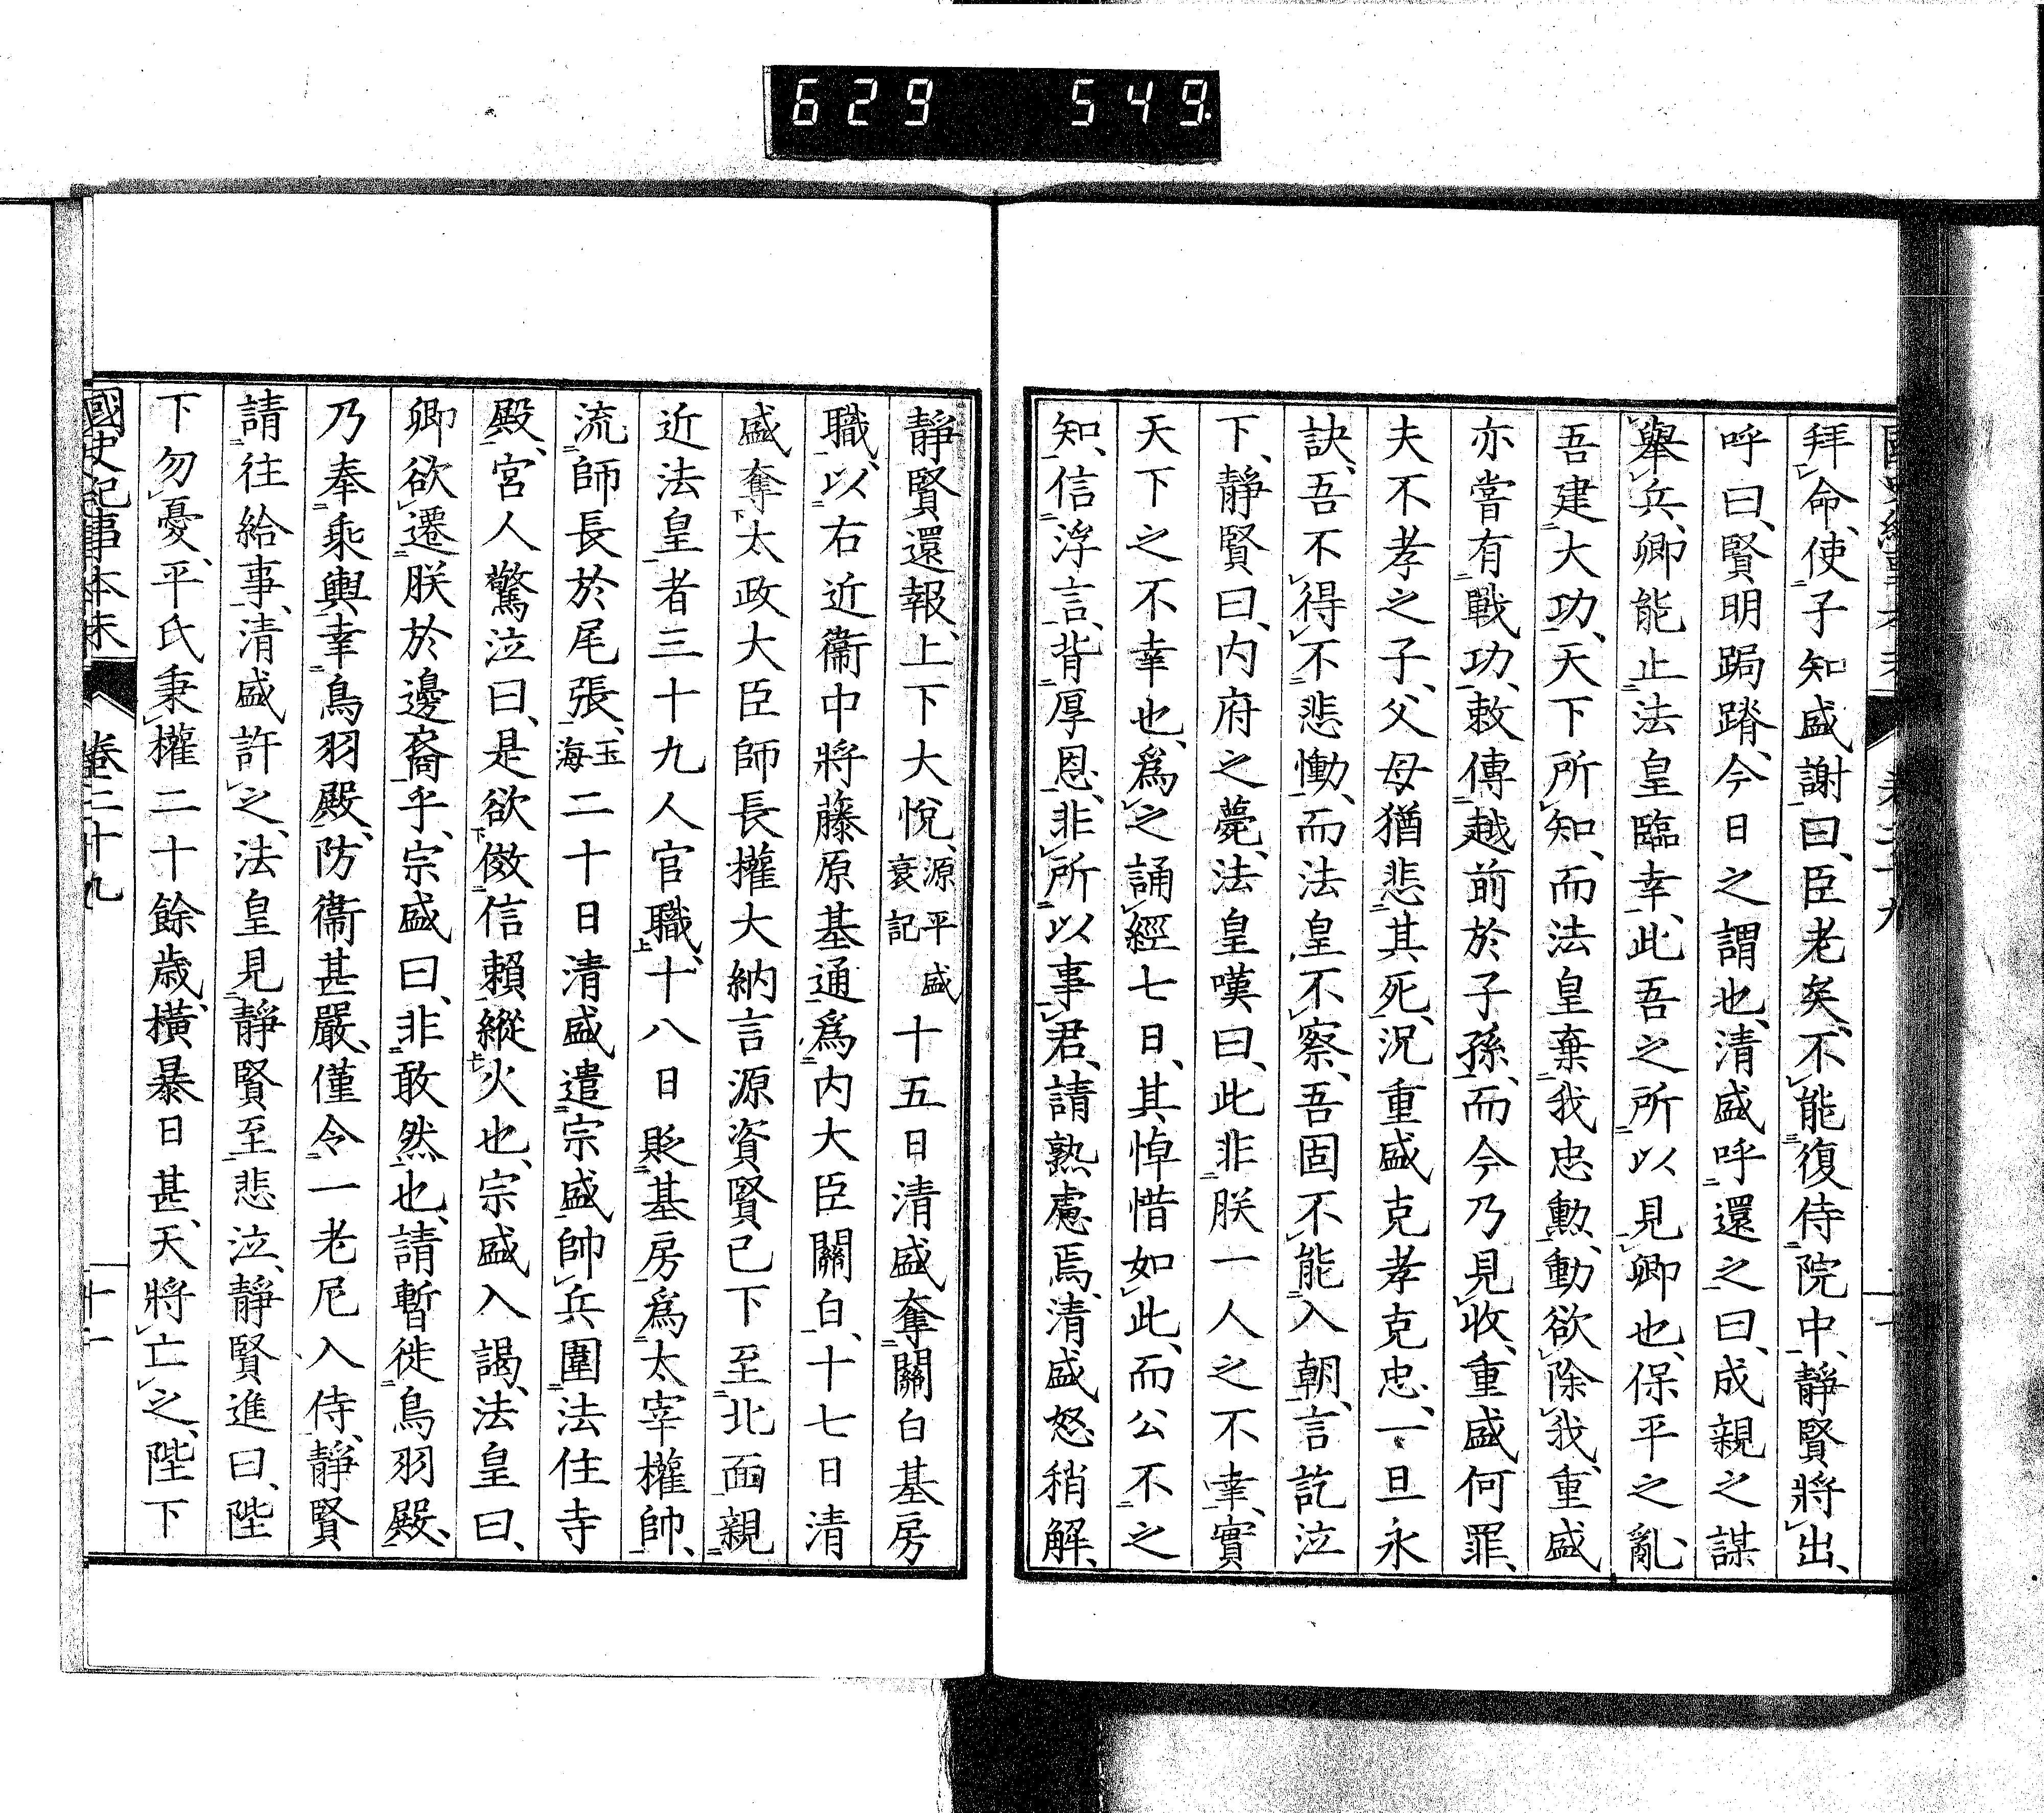 629 549.
拜命、使子知盛謝曰、臣老矣、不能復侍院中、靜賢將出、
呼曰、賢明跼蹐、今日之謂也、清盛呼還之曰、成親之謀
舉兵、卿能止法皇臨幸、此吾之所以見卿也、保平之亂、
吾建大功、天下所知、而法皇棄我忠勳、動欲除我、重盛
亦嘗有戰功、敕傳越前於子孫、而今乃見收、重盛何罪、
夫不孝之子、父母猶悲其死、況重盛克孝克忠、一旦永
訣、吾不得不悲慟、而法皇不察、吾固不能入朝、言訖泣
下、靜賢曰、內府之薨、法皇嘆曰、此非朕一人之不幸、實
天下之不幸也、爲之誦經七日、其悼惜如此、而公不之
知、信浮言、背厚恩、非所以事君、請熟慮焉、清盛怒稍解、
靜賢還報、上下大悅、源平盛衰記十五日清盛奪關白基房
職、以右近衞中將藤原基通爲內大臣關白、十七日清
盛奪太政大臣師長權大納言源資賢已下至北面親
近法皇者三十九人官職、十八日貶基房爲太宰權帥、
流師長於尾張、玉海二十日清盛遣宗盛帥兵圍法住寺
殿、宮人驚泣曰、是欲傚信賴縱火也、宗盛入謁、法皇曰、
卿欲遷朕於邊裔乎、宗盛曰、非敢然也、請暫徙鳥羽殿、
乃奉乘輿幸鳥羽殿、防衞甚嚴、僅令一老尼入侍、靜賢
請往給事、清盛許之、法皇見靜賢至悲泣、靜賢進曰、陛
下勿憂、平氏秉權二十餘歲、橫暴日甚、天將亡之、陛下
國史紀事本末 卷二十九 十一